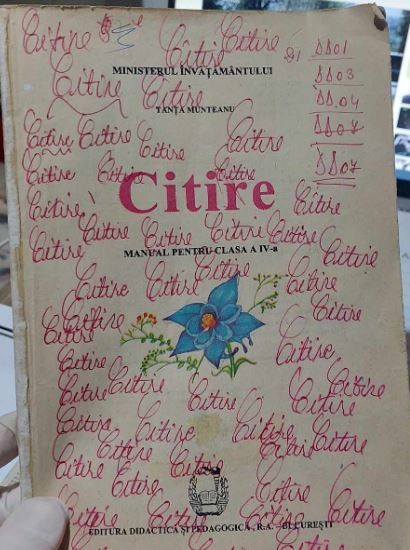 Citire Citire Citire
DD01
MINISTERUL ÎNVĂŢĂMÂNTULUI
DD03
Citire Citire
DD04
TANŢA MUNTEANU
Citire Citire Citire Citire
DD07
Citire Citire Citire
Citire
Citire Citire
Citire Citire Citire Citire Citire
MANUAL PENTRU CLASA A IV-a
Citire Citire Citire Citire Citire
Citire Citire
Citire Citire
Citire Citire
Citire Citire Citire Citire
Citire Citire Citire Citire
Citire Citire Citire
Citire Citire Citire
Citire Citire
EDITURA DIDACTICĂ ŞI PEDAGOGICĂ, R.A. - BUCUREŞTI